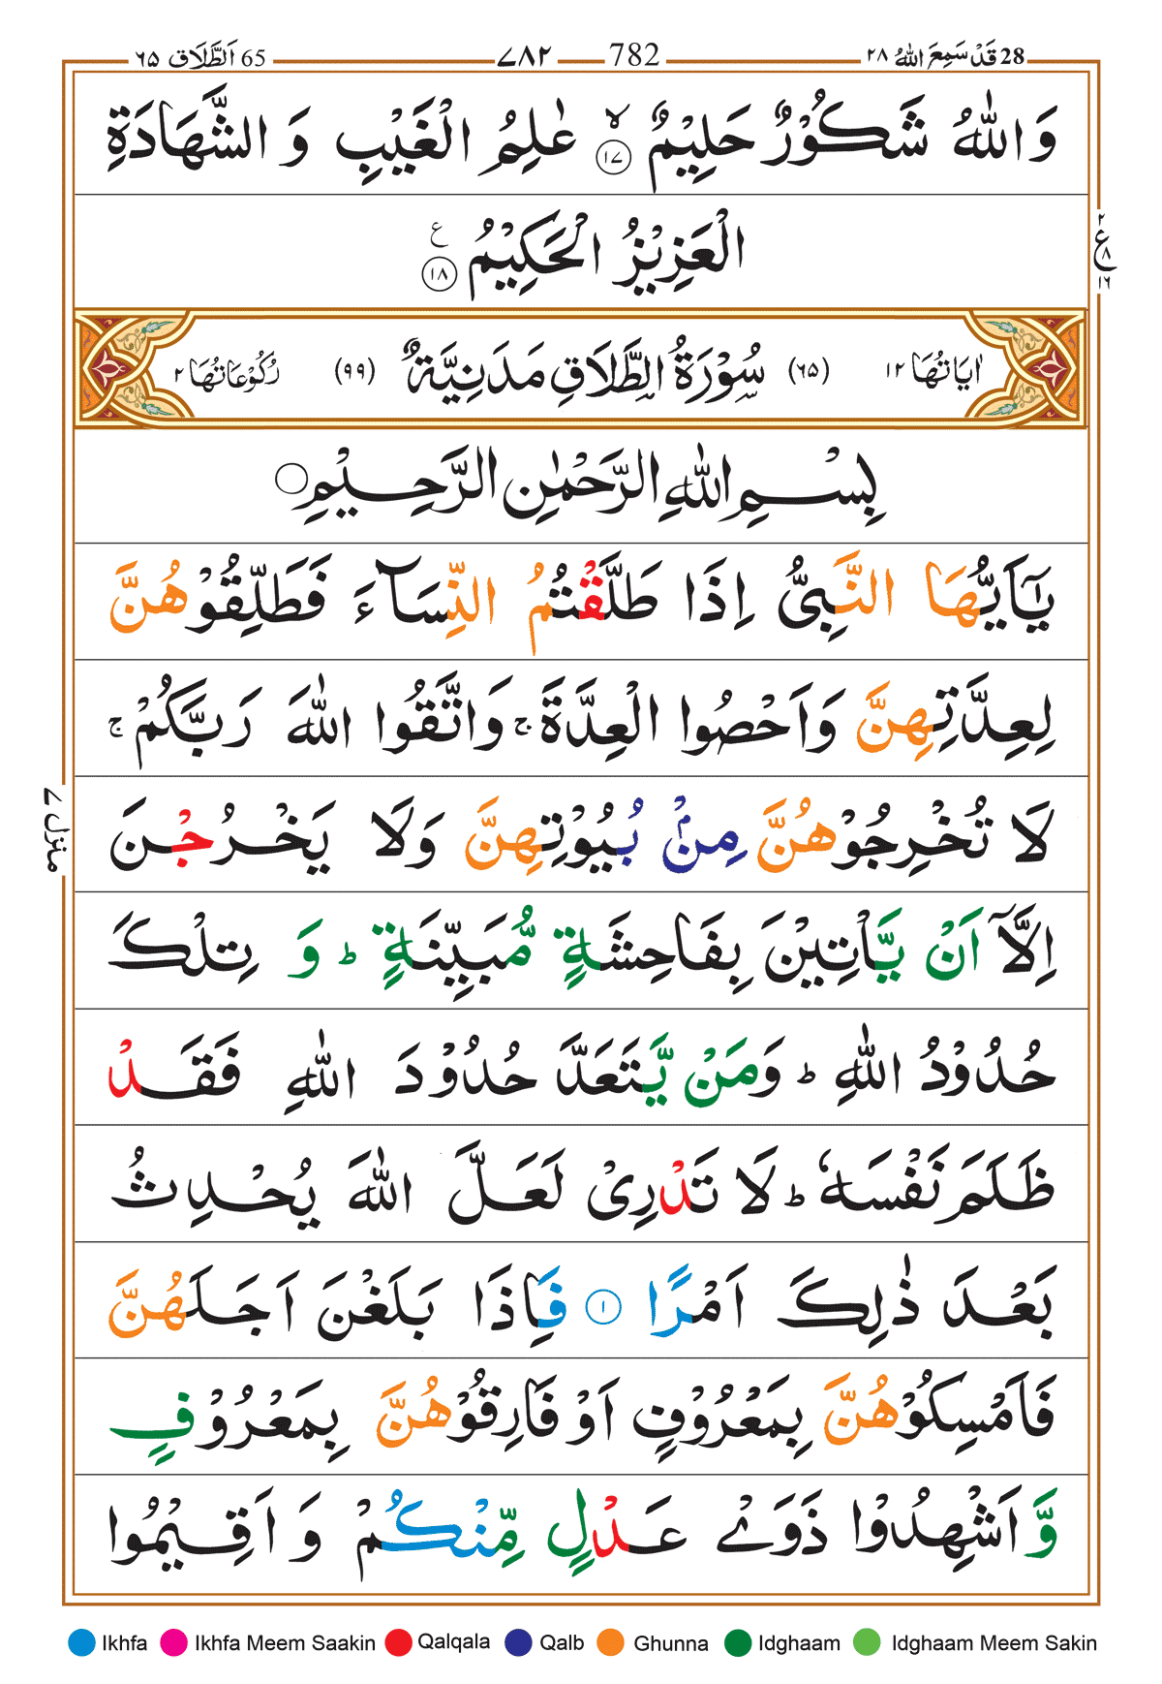 28 قَدْ سَمِعَ اللهُ ٢٨ 782 ٧٨٢ 65 اَلطَّلَاق ٦٥
وَاللّٰهُ شَكُوْرٌ حَلِيْمٌ ۙ ١٧ عٰلِمُ الْغَيْبِ وَ الشَّهَادَةِ
الْعَزِيْزُ الْحَكِيْمُ ١٨ ع
٢ ع ٨ ١٦
اٰيَاتُهَا ١٢ (٦٥) سُوْرَةُ الطَّلَاقِ مَدَنِيَّةٌ (٩٩) رُكُوْعَاتُهَا ٢
بِسْمِ اللّٰهِ الرَّحْمٰنِ الرَّحِيْمِ
يٰٓاَيُّهَا النَّبِىُّ اِذَا طَلَّقْتُمُ النِّسَآءَ فَطَلِّقُوْهُنَّ
لِعِدَّتِهِنَّ وَاَحْصُوا الْعِدَّةَ ۚ وَاتَّقُوا اللّٰهَ رَبَّكُمْ ۚ
لَا تُخْرِجُوْهُنَّ مِنْۢ بُيُوْتِهِنَّ وَلَا يَخْرُجْنَ
منزل ٧
اِلَّآ اَنْ يَّاْتِيْنَ بِفَاحِشَةٍ مُّبَيِّنَةٍ ؕ وَ تِلْكَ
حُدُوْدُ اللّٰهِ ؕ وَمَنْ يَّتَعَدَّ حُدُوْدَ اللّٰهِ فَقَدْ
ظَلَمَ نَفْسَهٗ ؕ لَا تَدْرِىْ لَعَلَّ اللّٰهَ يُحْدِثُ
بَعْدَ ذٰلِكَ اَمْرًا ١ فَاِذَا بَلَغْنَ اَجَلَهُنَّ
فَاَمْسِكُوْهُنَّ بِمَعْرُوْفٍ اَوْ فَارِقُوْهُنَّ بِمَعْرُوْفٍ
وَّاَشْهِدُوْا ذَوَىْ عَدْلٍ مِّنْكُمْ وَ اَقِيْمُوا
Ikhfa Ikhfa Meem Saakin Qalqala Qalb Ghunna Idghaam Idghaam Meem Sakin